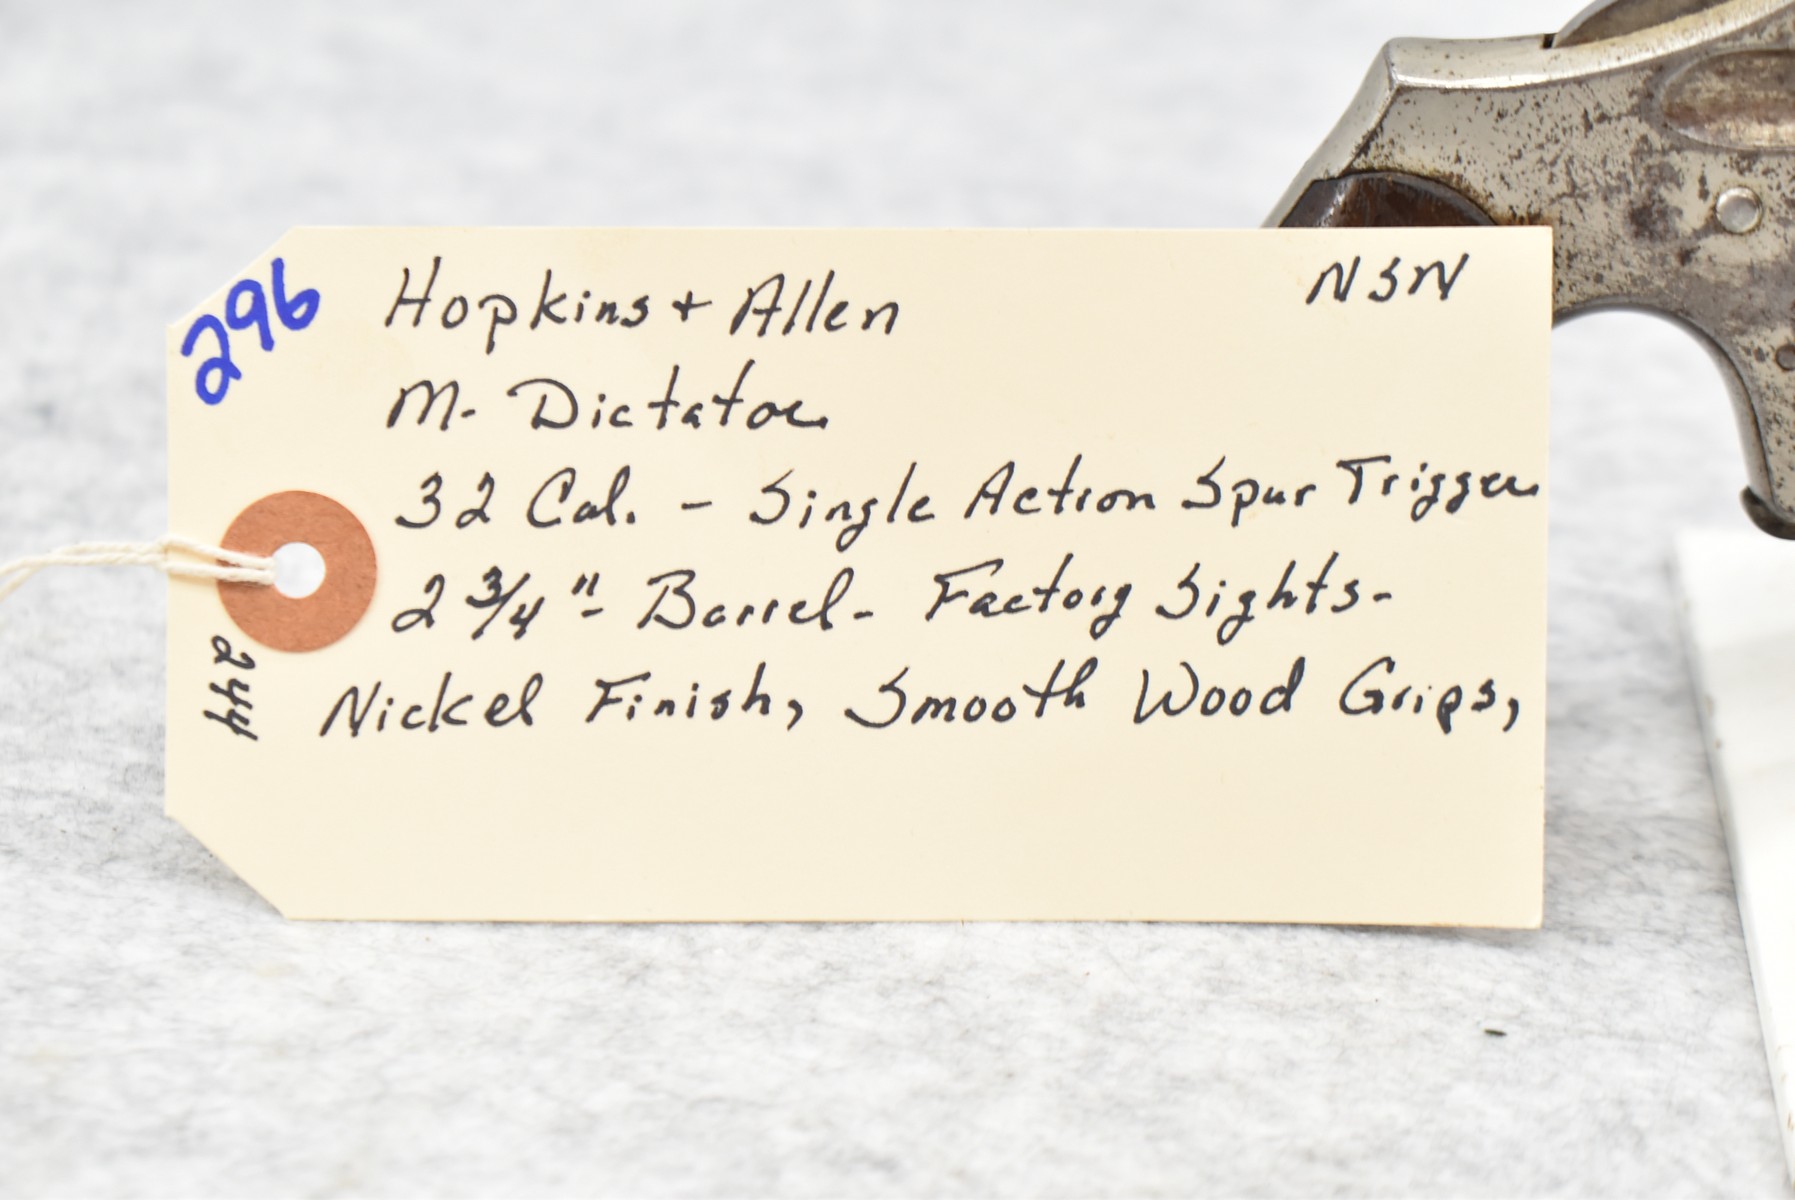 296
Hopkins + Allen NSN
M- Dictator
32 Cal. - Single Action Spur Trigger
2 3/4"- Barrel- Factory Sights-
Nickel Finish, Smooth Wood Grips,
244